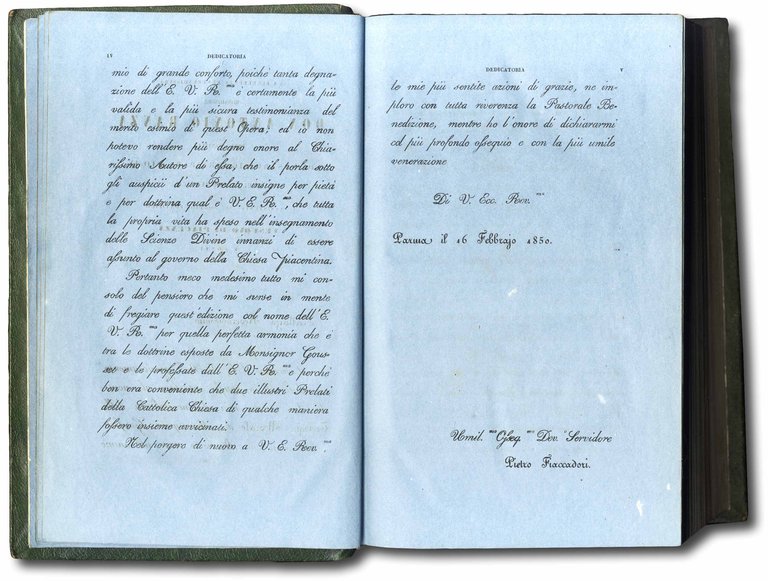 IV DEDICATORIA
mio di grande conforto, poichè tanta degna-
zione dell'E. V. R.ma è certamente la più
valida e la più sicura testimonianza del
merito esimio di quest'Opera; ed io non
potevo rendere più degno onore al Chia-
rissimo Autore di essa, che il porla sotto
gli auspicii d'un Prelato insigne per pietà
e per dottrina qual è V. E. R.ma, che tutta
la propria vita ha speso nell'insegnamento
delle Scienze Divine innanzi di essere
assunto al governo della Chiesa Piacentina.
Pertanto meco medesimo tutto mi con-
solo del pensiero che mi surse in mente
di fregiare quest'edizione col nome dell'E.
V. R.ma per quella perfetta armonia che è
tra le dottrine esposte da Monsignor Gous-
set e le professate dall'E. V. R.ma e perchè
ben era conveniente che due illustri Prelati
della Cattolica Chiesa di qualche maniera
fossero insieme avvicinati.
Nel porgere di nuovo a V. E. Rev.ma
DEDICATORIA V
le mie più sentite azioni di grazie, ne im-
ploro con tutta riverenza la Pastorale Be-
nedizione, mentre ho l'onore di dichiararmi
col più profondo ossequio e con la più umile
venerazione
Di V. Ecc. Rev.ma
Parma il 16 Febbrajo 1850.
Umil.mo Osseq.mo Dev.o Servidore
Pietro Fiaccadori.